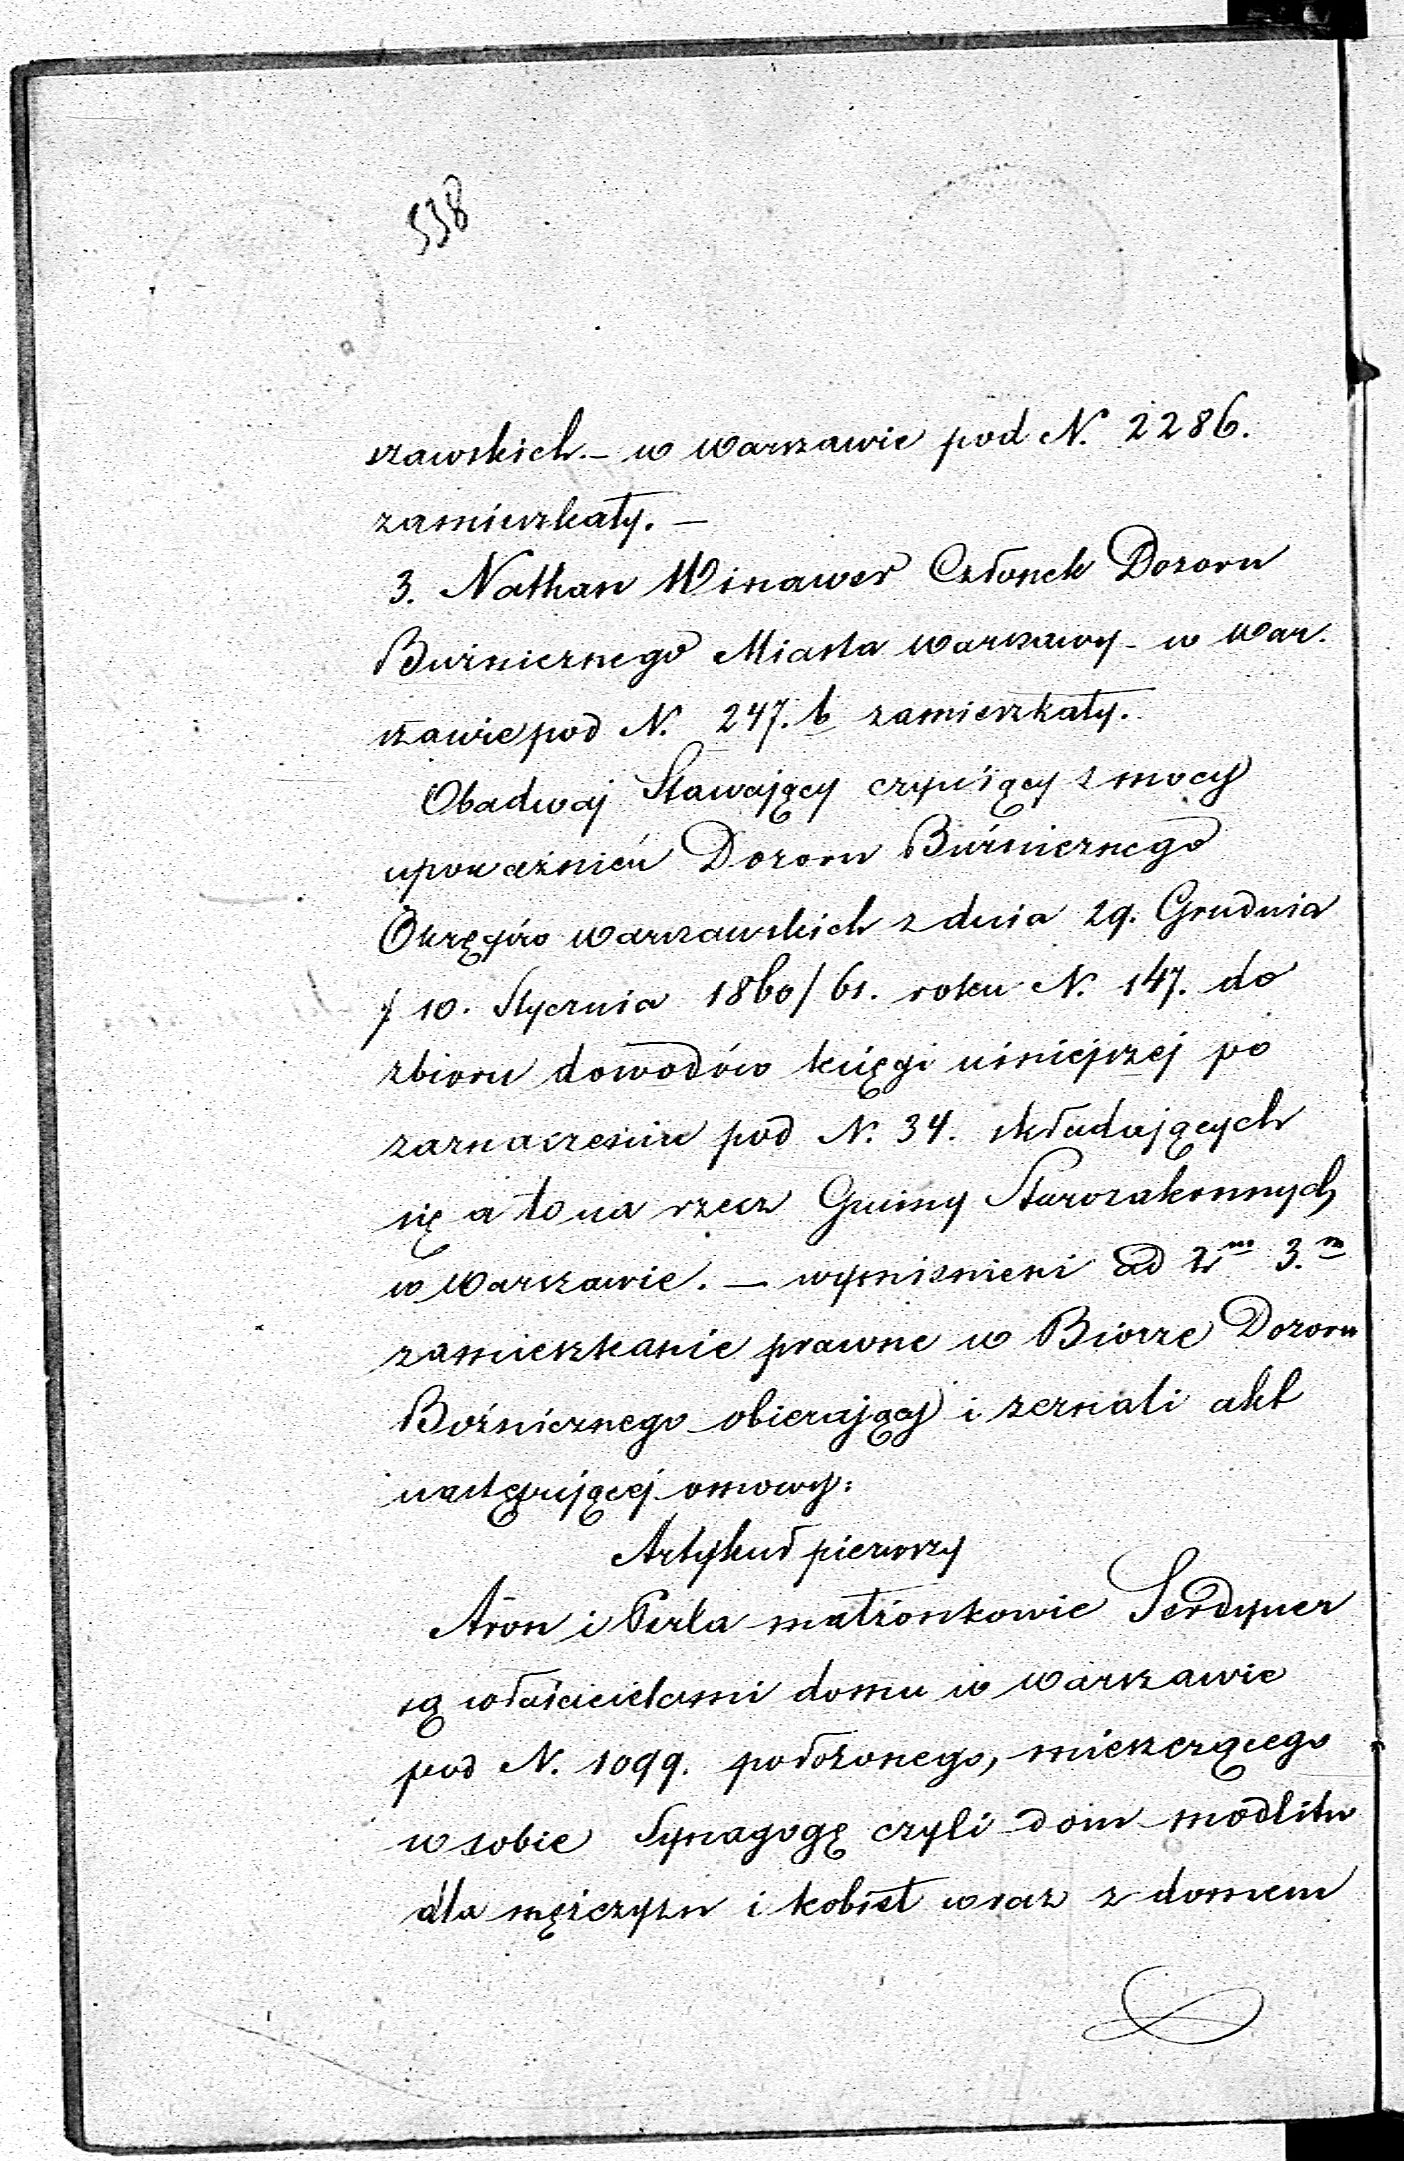 538
szawskich. – w Warszawie pod N. 2286.
zamieszkały. –
3. Nathan Winawer Członek Dozoru
Bużnicznego Miasta Warszawy – w War.
szawie pod N. 247. b zamieszkały.
Obadwaj Stawający czyniący z mocy
upoważnień Dozoru Bużnicznego
Okręgów Warszawskich z dnia 29. Grudnia
/ 10. Stycznia 1860/61. roku N. 147. do
zbioru dowodów księgi niniejszej po
zaznaczeniu pod N. 34. składających
się a to na rzecz Gminy Starozakonnych
w Warszawie. – wymienieni ad 2m 3.m
zamieszkanie prawne w Biórze Dozoru
Bożnicznego obierający i zeznali akt
następującej omowy:
Artykuł pierwszy
Aron i Perla małżonkowie Serdyner
są właścicielami domu w Warszawie
pod N. 1099. położonego, mieszczącego
w sobie Synagogę czyli dom modlitw
dla mężczyzn i kobiet wraz z domem